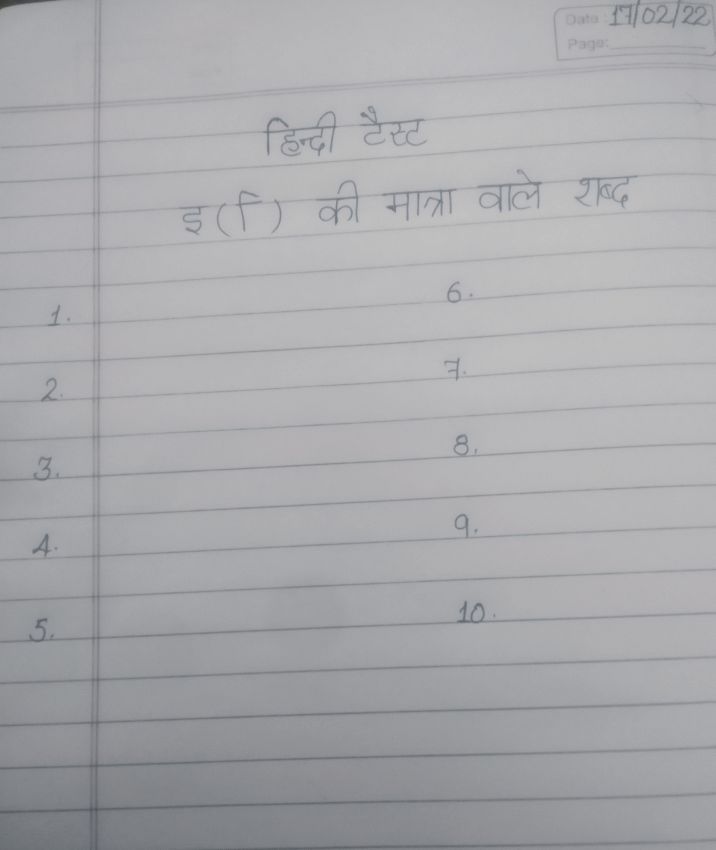 Date: 17/02/22
Page:
हिन्दी टैस्ट
इ (ि) की मात्रा वाले शब्द
1.
6.
2.
7.
3.
8.
4.
9.
5.
10.